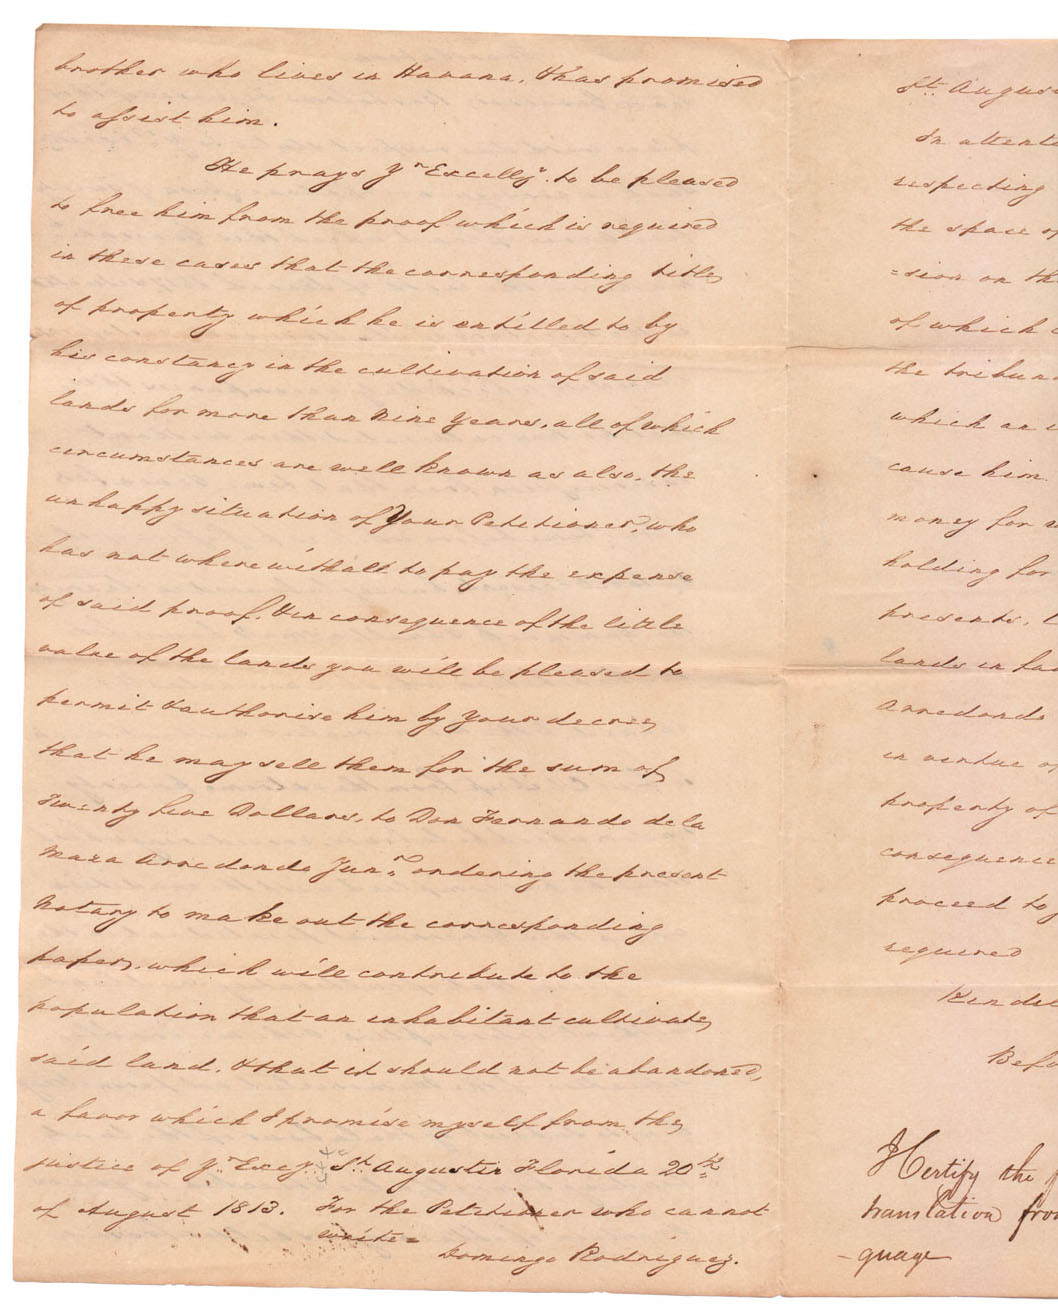 brother who lives in Havana, & has promised
to assist him.
He prays Yr. Excelly. to be pleased
to free him from the proof which is required
in these cases that the corresponding title,
of property which he is entitled to by
his constancy in the cultivation of said
lands for more than Nine Years, all of which
circumstances are well known as also, the
unhappy situation of Your Petitioner, who
has not wherewithall to pay the expense
of said proof, & in consequence of the little
value of the lands you will be pleased to
permit & authorise him by Your decree,
that he may sell them for the sum of
Twenty five Dollars, to Don Fernando de la
Maza Arredondo Junr. ordering the present
Notary to make out the corresponding
papers, which will contribute to the
population that an inhabitant cultivate,
said land, & that it should not be abandoned,
a favor which I promise myself from the,
justice of Yr. Excy. St. Augustin Florida 20th
of August 1813. For the Petitioner who cannot
write =
Domingo Rodriguez.
St. Augus
In attent
respecting
the space of
=sion on th
of which
the tribun
which an
cause him
money for
holding for
presents,
lands in fa
Arredondo
in vertue of
property of
consequence
proceed to
required
Kindel
Befo
I Certify the
translation from
-guage